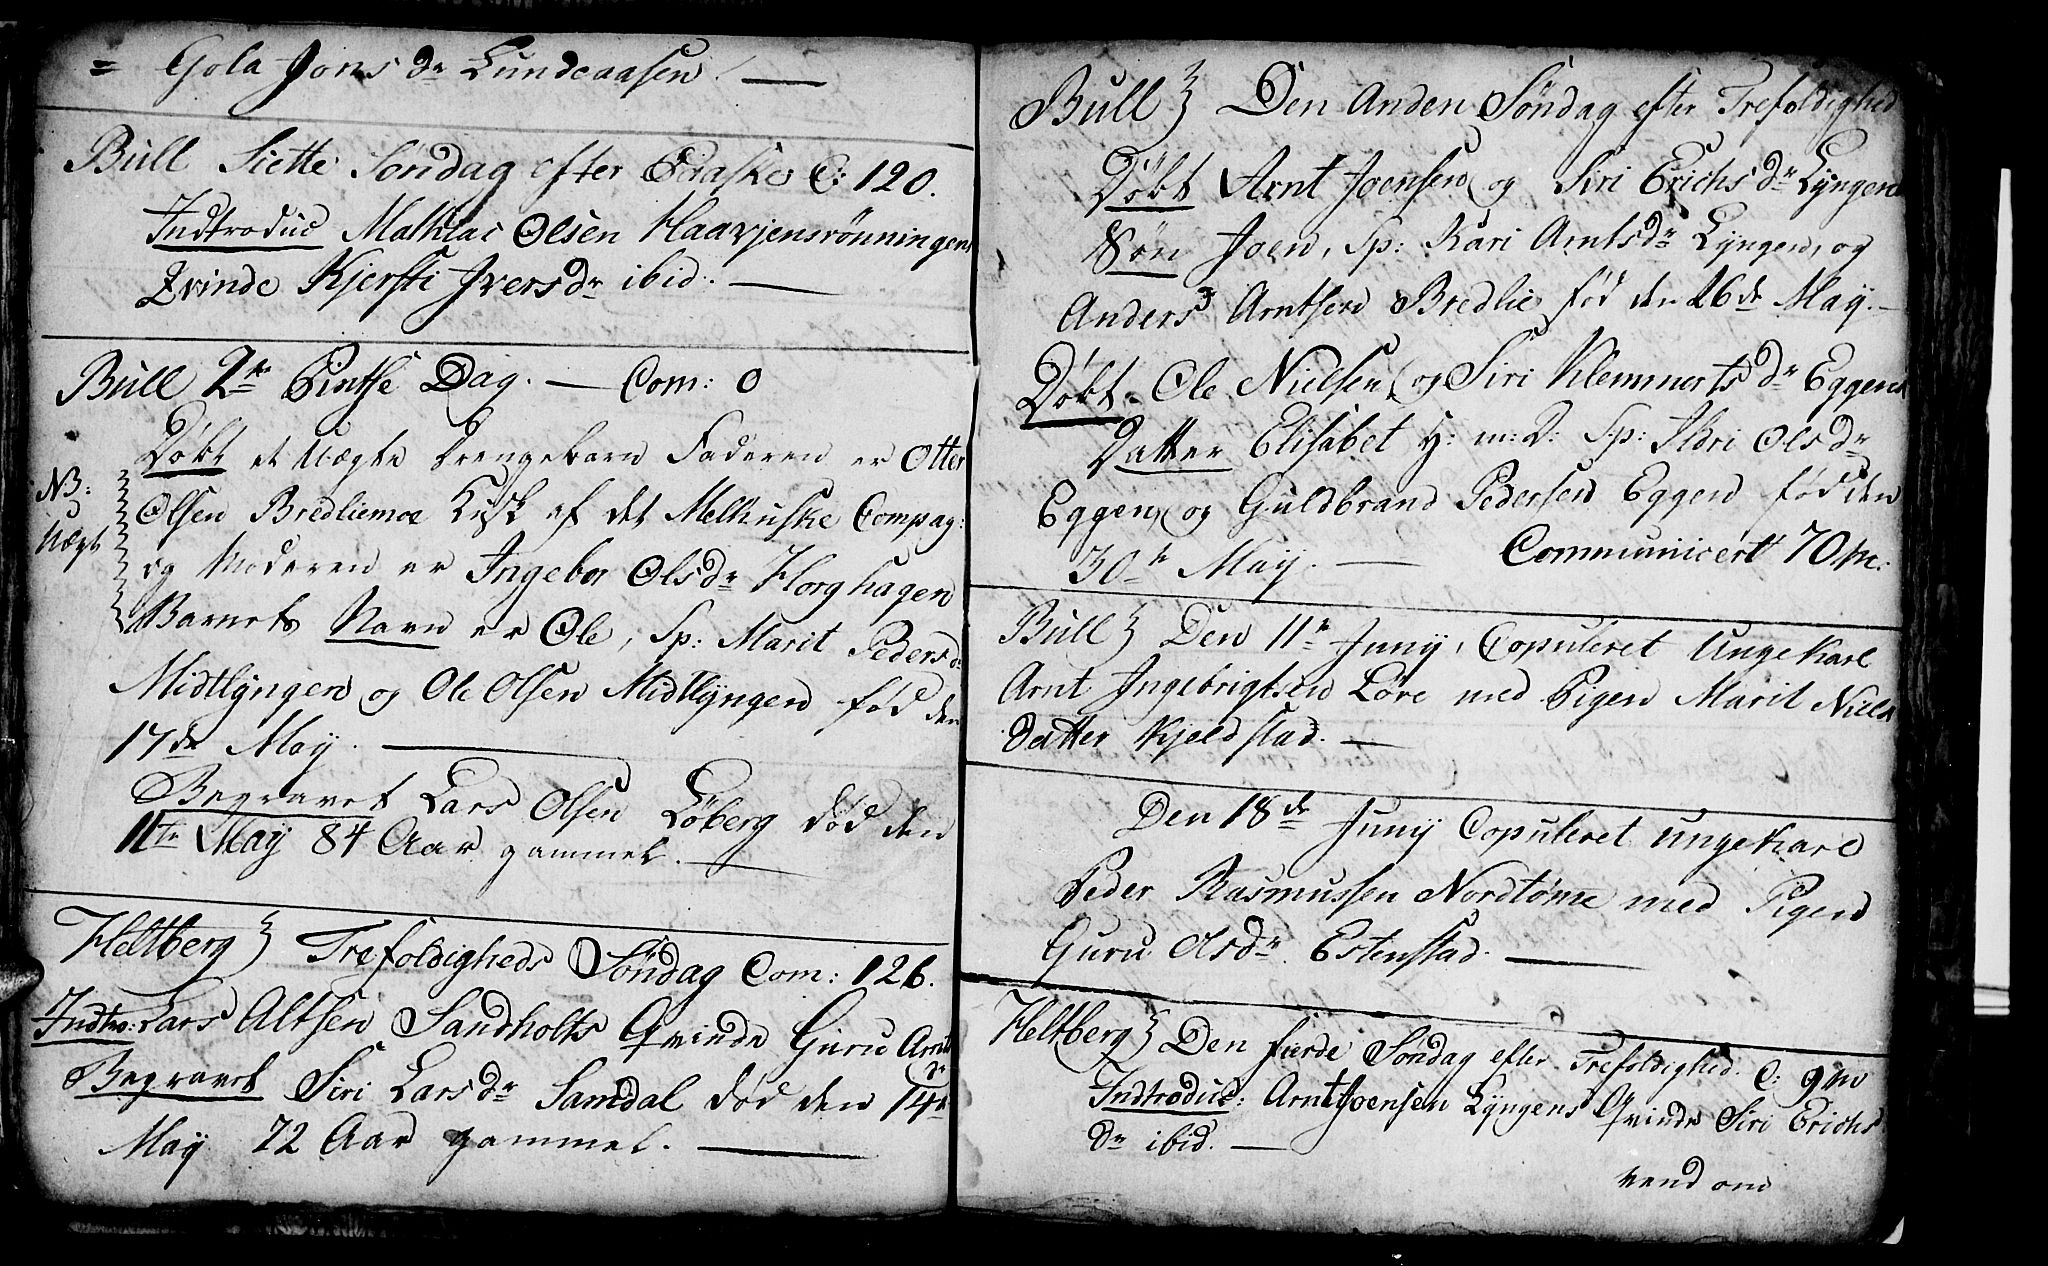 = Gola Jons dr Lundeaasen. —
Bull Siette Søndag efter Paaske C: 120.
Indtroduc Mathias Olsen Haavjensrønningens
Qvinde Kjersti Ivers dr ibid. —
Bull 2den Pintse Dag. — Com: 0
NB: Uægte
Døbt et Uægte Drengebarn Faderen er Otter
Olsen Bredliemoe af det Melhuske Compag:
og Moderen er Ingebor Olsdr Horghagen
Barnets Navn er Ole, Sp: Marit Pedersdr
Midtlyngen og Ole Olsen Midtlyngen fød den
17de May. —
Begravet Lars Olsen Løberg død den
11te May 84 Aar gammel. —
Heltberg } Trefoldigheds Søndag Com: 126.
Indtro: Lars Altsen Sandholts Qvinde Guru Arntsdr
Begravet Siri Larsdr Samdal død den 14de
May 72 Aar gammel. —
Bull } Den Anden Søndag efter Trefoldighed
Døbt Arnt Joensen og Siri Erichsdr Lyngens
Søn Joen, Sp: Kari Arntsdr Lyngen, og
Anders Arntsen Bredlie fød den 26de May. —
Døbt Ole Nielsen og Siri Klemmertsdr Eggens
Datter Elisabet H: m: D: Sp: Ildri Olsdr
Eggen, og Guldbrand Pedersen Eggen fød den
30te May. — Communicert 70 M.
Bull } Den 11te Juny, Copuleret Unge Karl
Arnt Ingebrigtsen Løre med Pigen Marit Niels
Datter Kjeldstad. —
Den 18de Juny Copuleret Unge Karl
Peder Rasmussen Nordtømme med Pigen
Guru Olsdr. Estenstad. —
Heltberg } Den fierde Søndag efter Trefoldighed. C: 9 M
Indtroduc: Arnt Joensen Lyngens Qvinde Siri Erichs
dr ibid. —
vend om